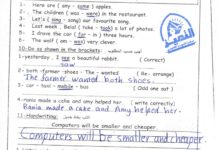 1- Here are ( any - some ) apples.
2- The children ( was - were ) in the restaurant.
3- Let's ( sing - song ) our favourite song.
4- Last week, Belal ( has - took ) a lot of photos.
5- I drove the car ( for - in ) three hours.
6- The wolf ( am - was ) very clever.
10-Do as shown in the brackets:-
1- yesterday , I see a beautiful rabbit. ( Correct )
saw
2- both -farmer - shoes - The - wanted ( Re - arrange)
The farmer wanted both shoes.
3- car - taxi - mobile - bus ( Odd one out )
4- rania made a cake and amy helped her. ( write correctly)
Rania made a cake and Amy helped her.
11-Handwriting:-
Computers will be smaller and cheaper.
Computers will be smaller and cheaper.